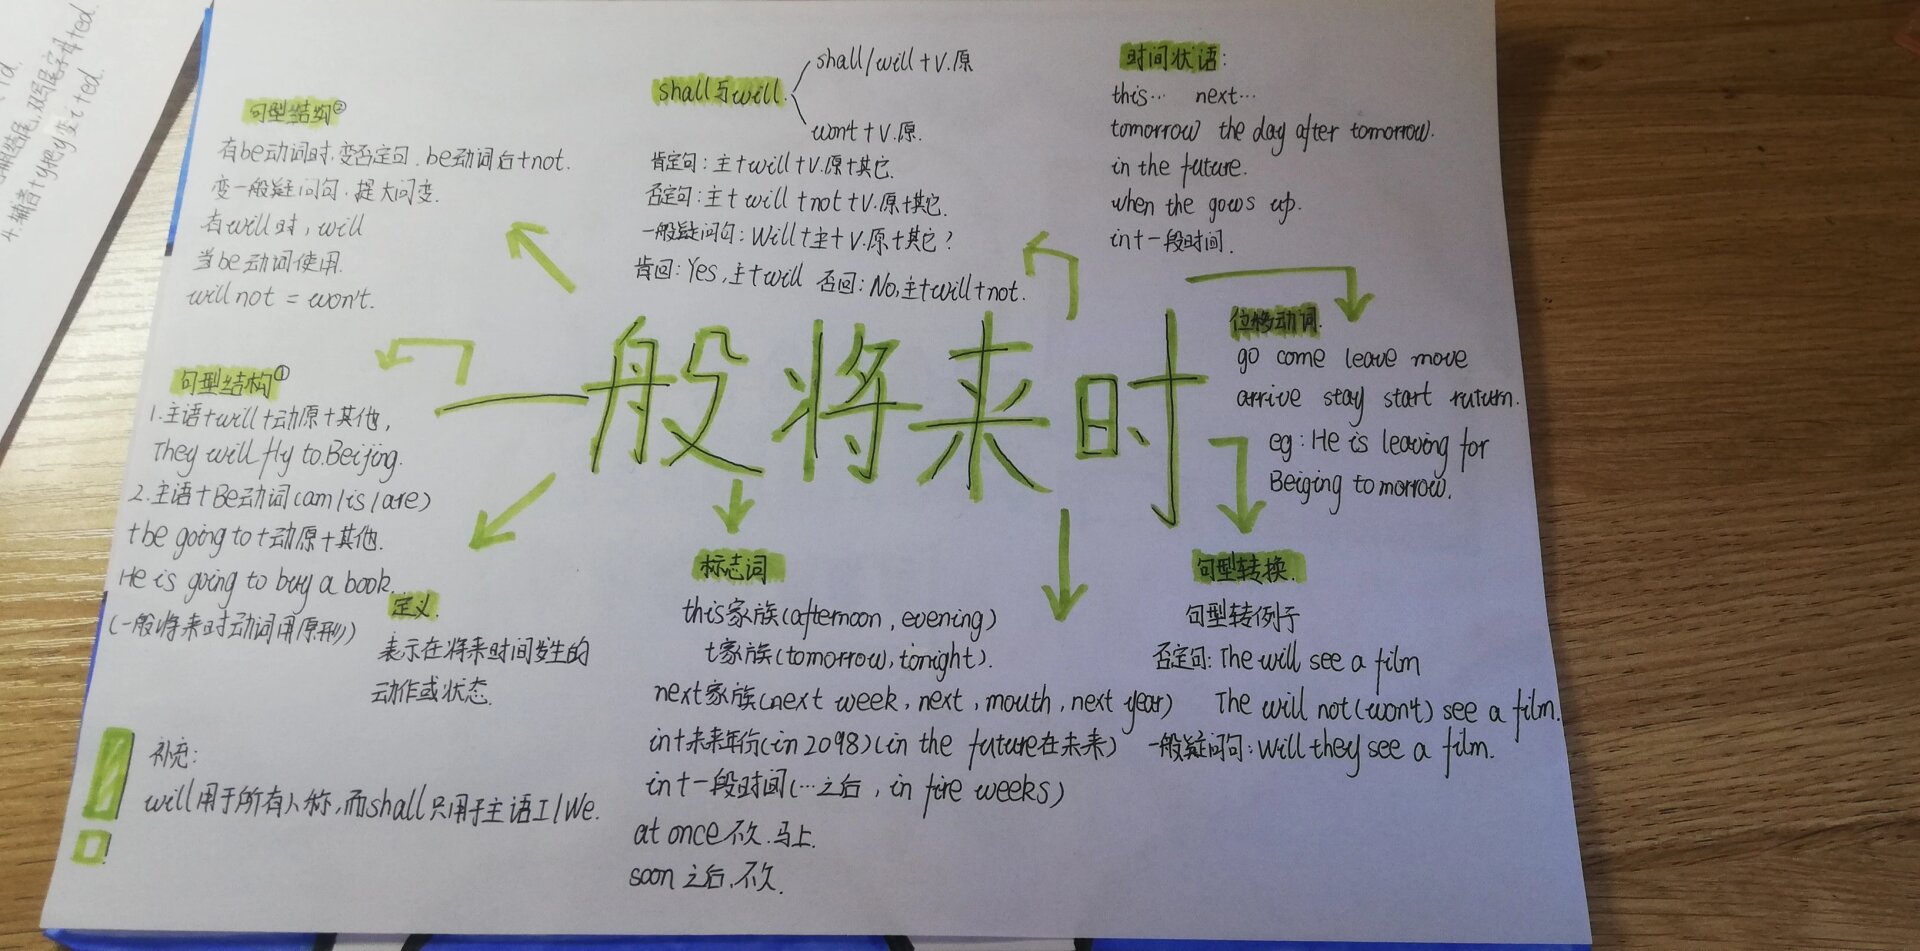 一般将来时
句型结构②
有be动词时,变否定句,be动词后+not.
变一般疑问句,提大问变.
有will时,will
当be动词使用.
will not = won't.
shall与will
shall/will+V.原
won't+V.原.
肯定句:主+will+V.原+其它.
否定句:主+will+not+V.原+其它.
一般疑问句:Will+主+V.原+其它?
肯回:Yes,主+will 否回:No,主+will+not.
时间状语:
this… next…
tomorrow the day after tomorrow.
in the future.
when the gows up.
in+一段时间.
位移动词.
go come leave move
arrive stay start ruturn.
eg:He is leaving for
Beiging tomorrow.
句型结构①
1.主语+will+动原+其他,
They will fly to.Beijing.
2.主语+Be动词(am/is/are)
+be going to+动原+其他.
He is going to buy a book..
(一般将来时动词用原形)
定义.
表示在将来时间发生的
动作或状态.
标志词
this家族(afternoon,evening)
t家族(tomorrow,tonight).
next家族(next week,next,mouth,next year)
in+未来年份(in 2098)(in the future在未来)
in+一段时间(…之后,in fire weeks)
at once 不久.马上.
soon 之后,不久.
句型转换.
句型转例子
否定句:The will see a film
The will not(won't) see a film.
一般疑问句:Will they see a film.
补充:
will用于所有人称,而shall只用于主语I/We.
4.辅音+y把y变i+ed.